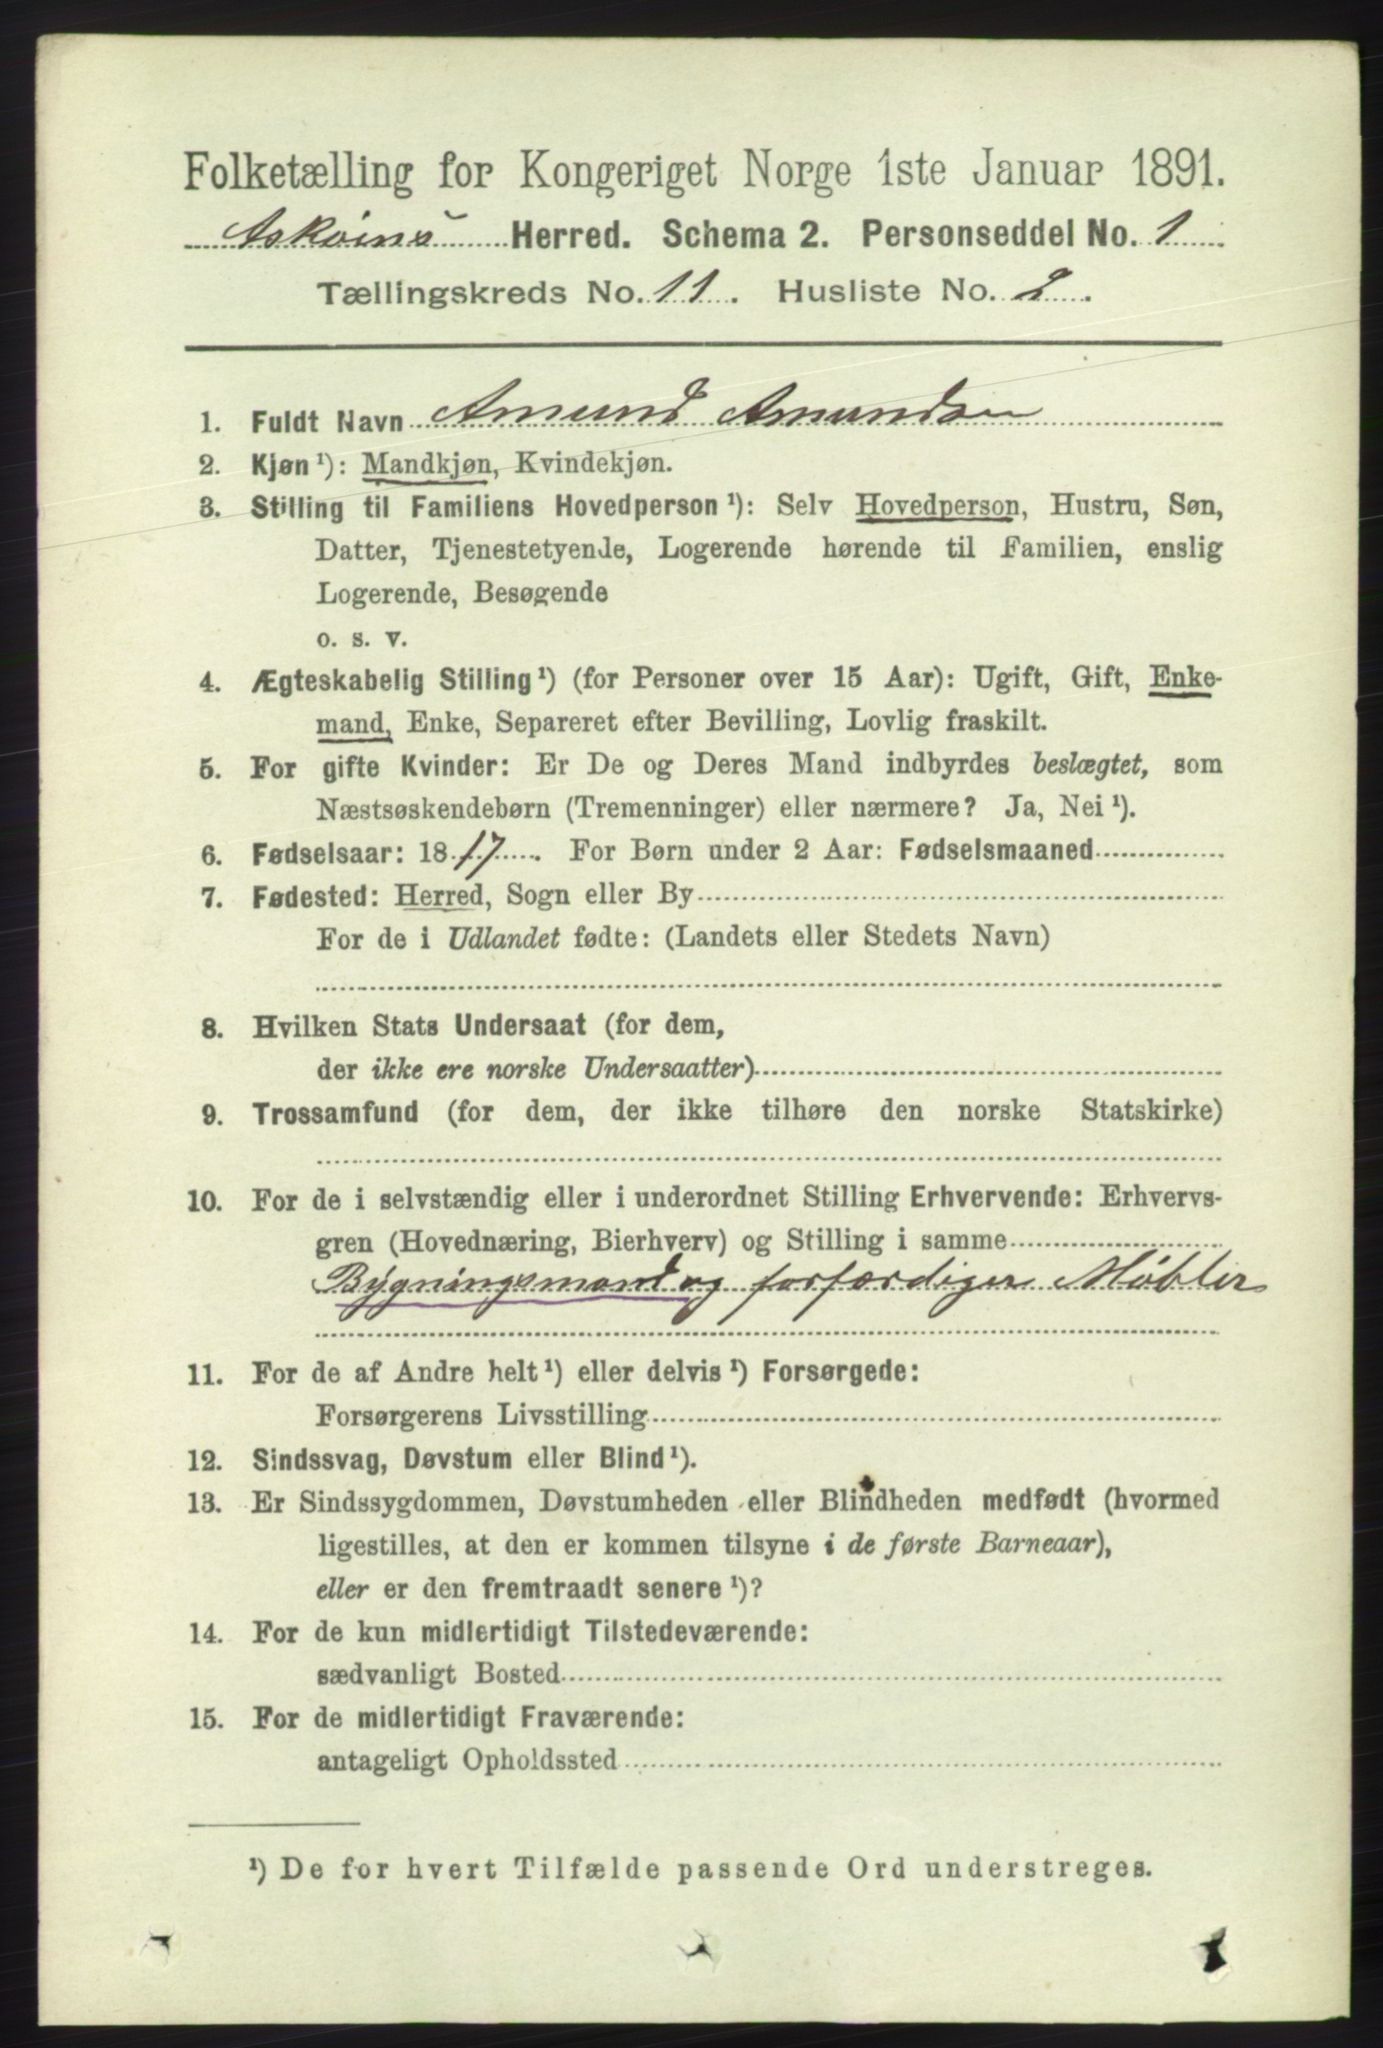 Folketælling for Kongeriget Norge 1ste Januar 1891.
Askøens Herred. Schema 2. Personseddel No. 1
Tællingskreds No. 11. Husliste No. 2.
1. Fuldt Navn Amund Amundsen
2. Kjøn¹): Mandkjøn, Kvindekjøn.
3. Stilling til Familiens Hovedperson¹): Selv Hovedperson, Hustru, Søn,
Datter, Tjenestetyende, Logerende hørende til Familien, enslig
Logerende, Besøgende
o. s. v.
4. Ægteskabelig Stilling¹) (for Personer over 15 Aar): Ugift, Gift, Enke-
mand, Enke, Separeret efter Bevilling, Lovlig fraskilt.
5. For gifte Kvinder: Er De og Deres Mand indbyrdes beslægtet, som
Næstsøskendebørn (Tremenninger) eller nærmere? Ja, Nei¹).
6. Fødselsaar: 1817. For Børn under 2 Aar: Fødselsmaaned
7. Fødested: Herred, Sogn eller By
For de i Udlandet fødte: (Landets eller Stedets Navn)
8. Hvilken Stats Undersaat (for dem,
der ikke ere norske Undersaatter)
9. Trossamfund (for dem, der ikke tilhøre den norske Statskirke)
10. For de i selvstændig eller i underordnet Stilling Erhvervende: Erhvervs-
gren (Hovednæring, Bierhverv) og Stilling i samme
Bygningsmand og forfærdiger Møbler
11. For de af Andre helt¹) eller delvis¹) Forsørgede:
Forsørgerens Livsstilling
12. Sindssvag, Døvstum eller Blind¹).
13. Er Sindssygdommen, Døvstumheden eller Blindheden medfødt (hvormed
ligestilles, at den er kommen tilsyne i de første Barneaar),
eller er den fremtraadt senere¹)?
14. For de kun midlertidigt Tilstedeværende:
sædvanligt Bosted
15. For de midlertidigt Fraværende:
antageligt Opholdssted
¹) De for hvert Tilfælde passende Ord understreges.